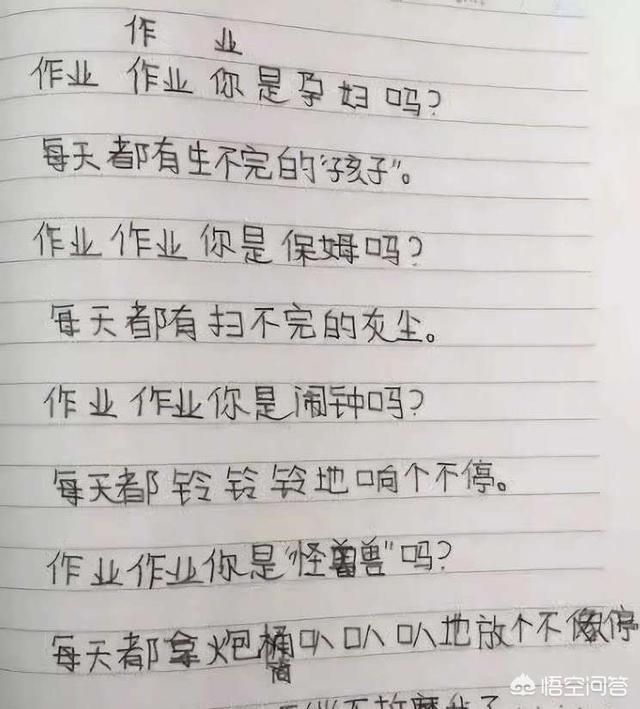 作 业
作业 作业 你是孕妇吗?
每天都有生不完的“孩子”。
作业 作业 你是保姆吗?
每天都有扫不完的灰尘。
作业 作业你是闹钟吗?
每天都铃铃铃地响个不停。
作业作业你是“怪兽”吗?
每天都拿炮筒叭叭叭地放个不停
悟空问答